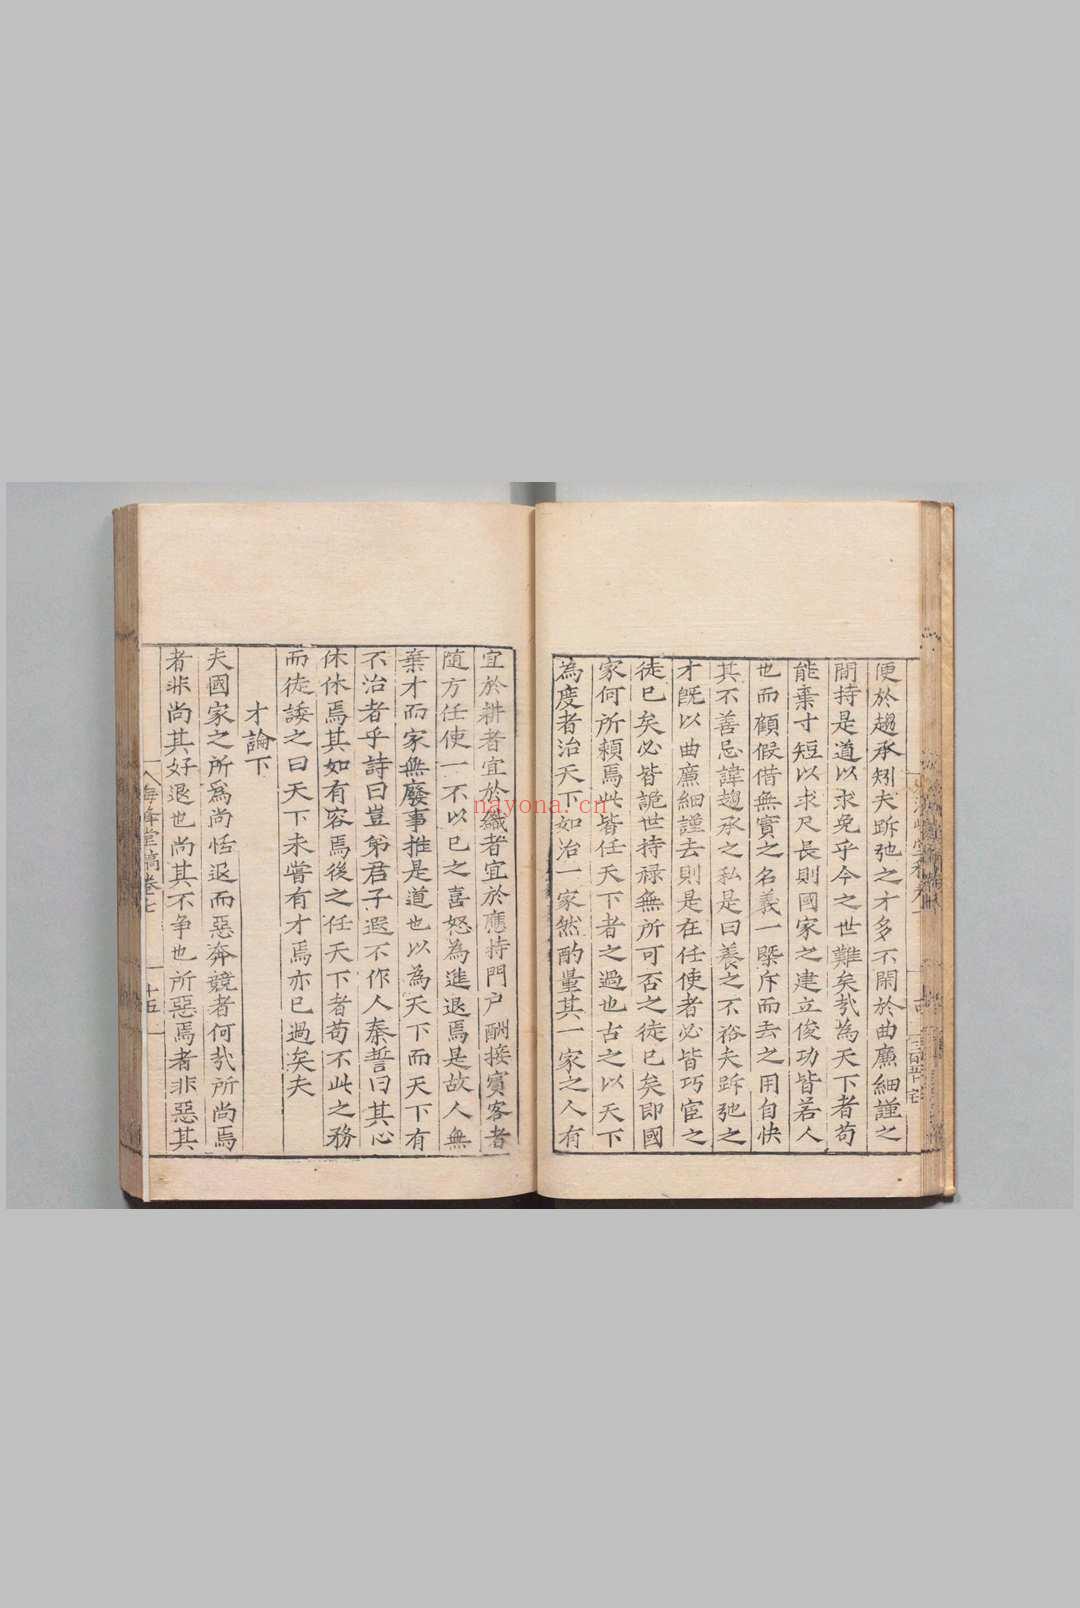 便於趨承矧夫跅弛之才多不閑於曲廉細謹之
間持是道以求免乎今之世難矣㢤為天下者苟
能棄寸短以求尺長則國家之建立俊功皆若人
也而顧假借無實之名義一槩斥而去之用自快
其不善忌諱趨承之私是曰養之不裕夫跅弛之
才旣以曲廉細謹去則是在任使者必皆巧宦之
徒已矣必皆詭世持祿無所可否之徒已矣即國
家何所頼焉此皆任天下者之過也古之以天下
為度者治天下如治一家然酌量其一家之人有
宜於耕者宜於織者宜於應持門戶酬接賓客者
随方任使一不以已之喜怒為進退焉是故人無
棄才而家無廢事推是道也以為天下而天下有
不治者乎詩曰豈弟君子遐不作人秦誓曰其心
休休焉其如有容焉後之任天下者苟不此之務
而徒諉之曰天下未嘗有才焉亦已過矣夫
才論下
夫國家之所為尚恬退而惡奔競者何㢤所尚焉
者非尚其好退也尚其不争也所惡焉者非惡其
海峰堂稿卷七
十五
nayona.cn